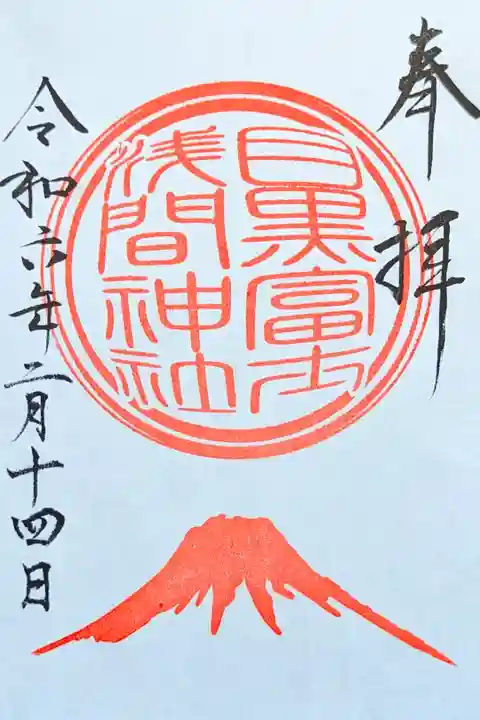 奉拝
目黒富士
浅間神社
令和六年二月十四日